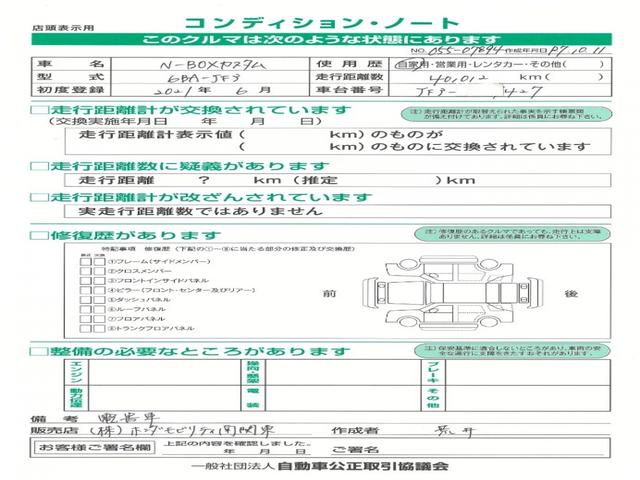 店頭表示用
コンディション・ノート
このクルマは次のような状態にあります
NO. 055-07894 作成年月日 R7.10.11
車名 N-BOXカスタム 使用歴 自家用・営業用・レンタカー・その他( )
型式 6BA-JF3 走行距離数 40,012 km( )
初度登録 2021年 6月 車台番号 JF3- 427
□走行距離計が交換されています
(交換実施年月日 年 月 日)
注)走行距離計が取替えられた事実を示す帳票類が備え付けてあります。詳細は係員にお尋ね下さい。
走行距離計表示値( km)のものが
( km)のものに交換されています
□走行距離数に疑義があります
走行距離 ? km(推定 )km
□走行距離計が改ざんされています
実走行距離数ではありません
□修復歴があります
注)修復歴のあるクルマであっても、走行上は支障ありません。詳細は係員にお尋ね下さい。
特記事項 修復歴(下記の①~⑧に当たる部分の修正及び交換歴)
修正 交換
①フレーム(サイドメンバー)
②クロスメンバー
③フロントインサイドパネル
④ピラー(フロント・センター及びリアー)
⑤ダッシュパネル
⑥ルーフパネル
⑦フロアパネル
⑧トランクフロアパネル
前
後
□整備の必要なところがあります
注)保安基準に適合しないところがあり、車両の安全な運行に支障をきたすおそれがあります。
エンジン
ブレーキ
動力伝達
電装
その他
備考
販売店 (株)ホンダモビリティ南関東 作成者 荒井
お客様ご署名欄
上記の内容を確認しました。
年 月 日 ご署名
一般社団法人 自動車公正取引協議会